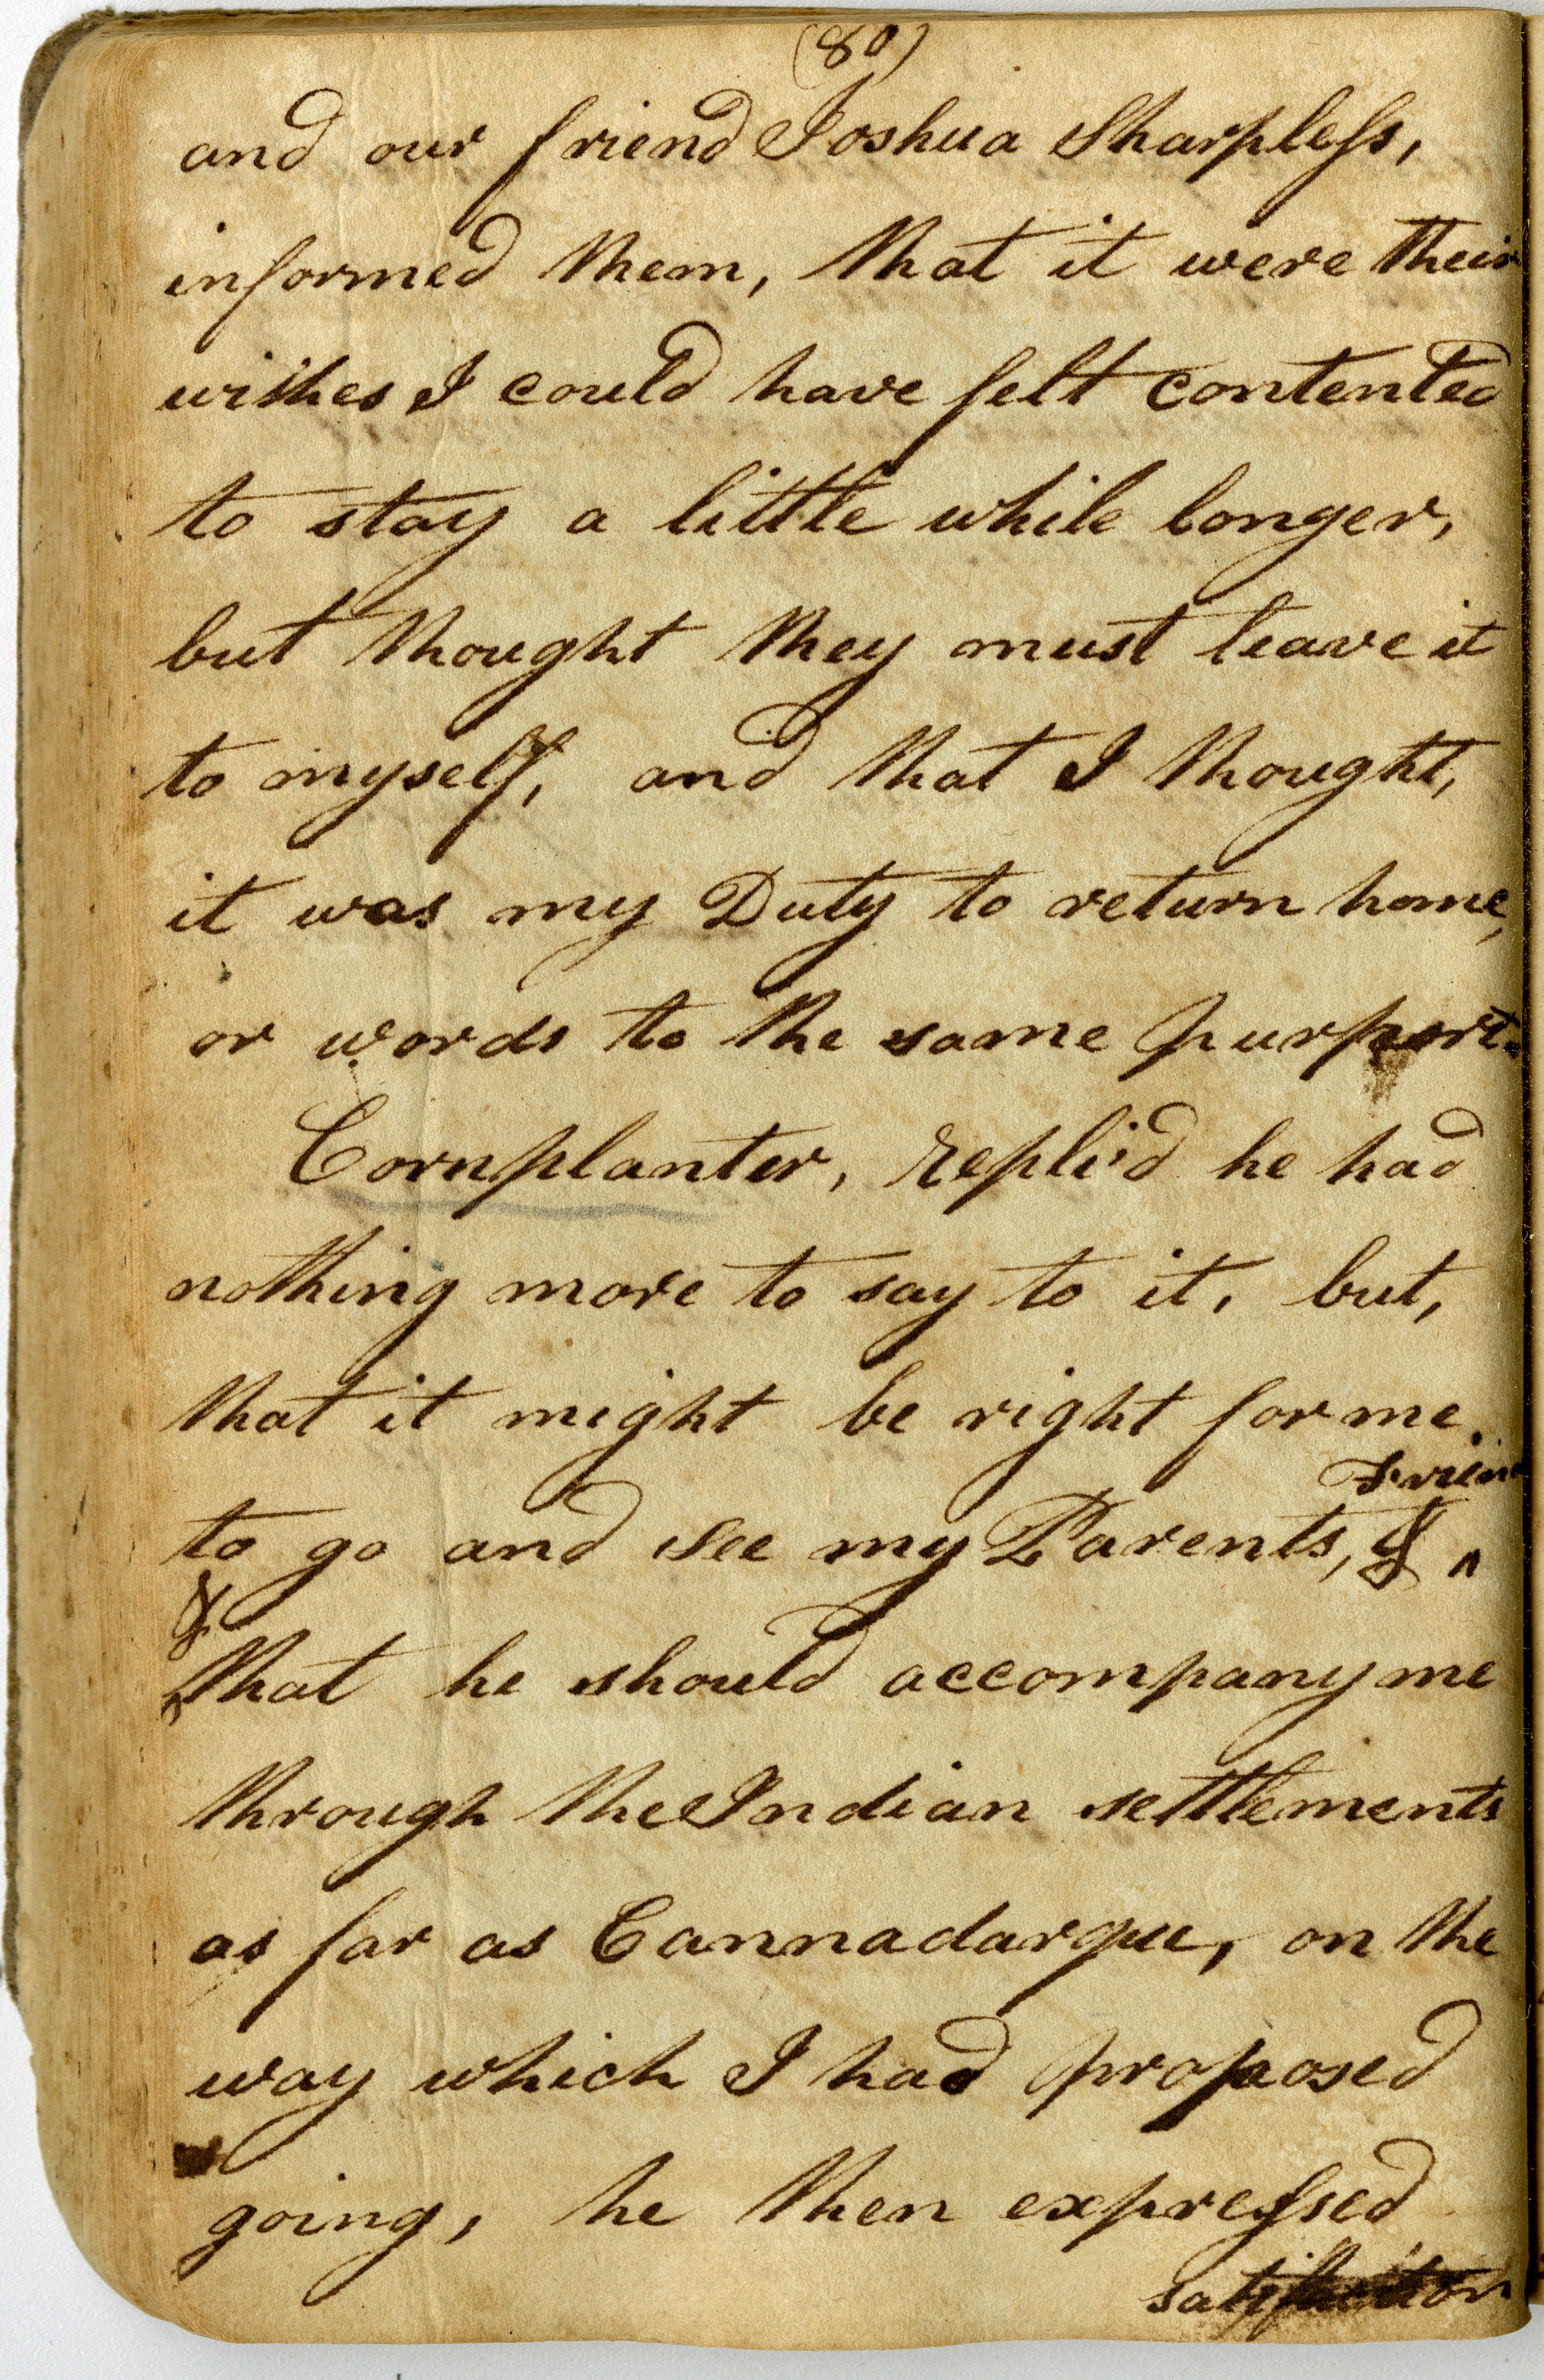 (80)
and our friend Joshua Sharpless,
informed them, that it were their
wishes I could have felt contented
to stay a little while longer,
but thought they must leave it
to myself, and that I thought,
it was my Duty to return home,
or words to the same purport.
Cornplanter, repli'd he had
nothing more to say to it, but,
that it might be right for me.
Friend
to go and see my Parents, & ^
&
^that he should accompany me
through the Indian settlements
as far as Cannadarque, on the
way which I had proposed
going, he then expressed
satisfaction